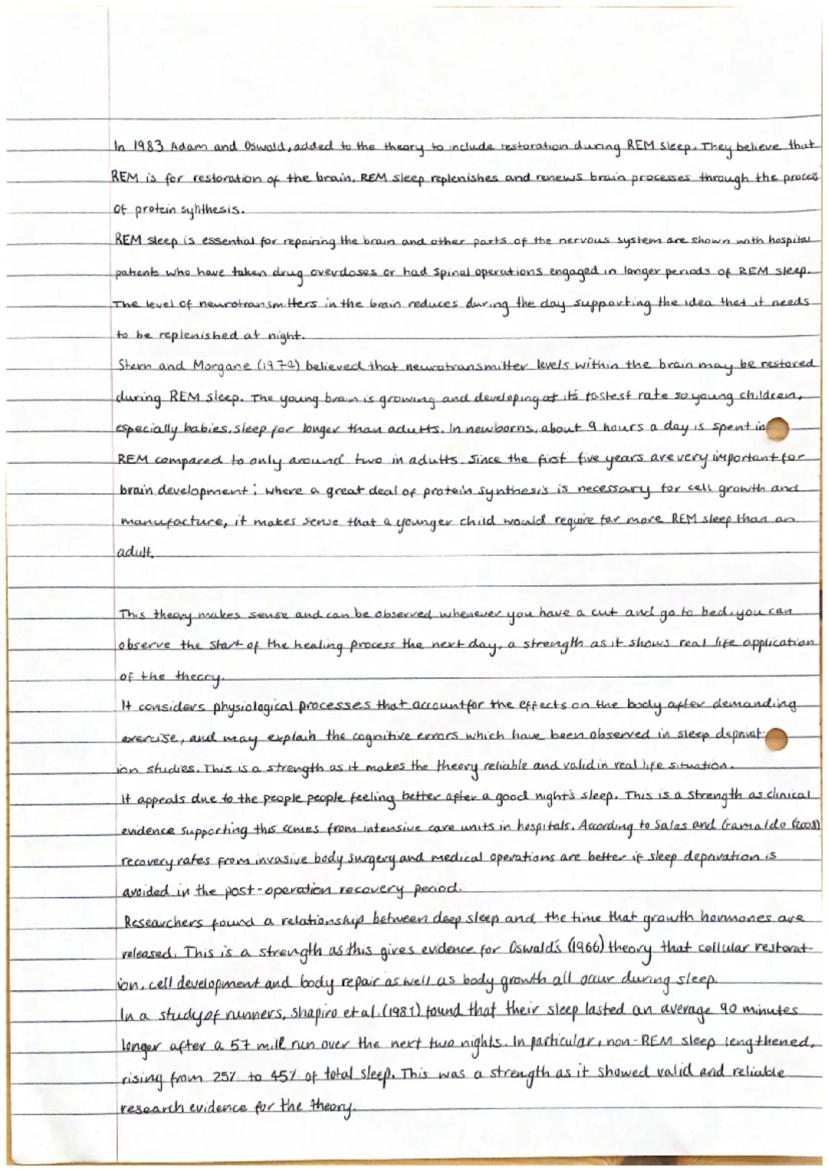 In 1983 Adam and Oswald, added to the theory to include restoration during REM sleep. They believe that
REM is for restoration of the brain, REM sleep replenishes and renews brain processes through the proces
of protein synthesis.
REM sleep is essential for repairing the brain and other parts of the nervous system are shown with hospital
patients who have taken drug overdoses or had spinal operations engaged in longer periods of REM sleep.
The level of neurotransmitters in the brain reduces during the day supporting the idea that it needs
to be replenished at night.
Stern and Morgane (1974) believed that neurotransmitter levels within the brain may be restored
during REM sleep. The young brain is growing and developing at its fastest rate so young children,
especially babies, sleep for longer than adults. In newborns, about 9 hours a day is spent in
REM compared to only around two in adults. Since the first five years are very important for
brain development; where a great deal of protein synthesis is necessary for cell growth and
manufacture, it makes sense that a younger child would require far more REM sleep than an
adult.
This theory makes sense and can be observed whenever you have a cut and go to bed, you can
observe the start of the healing process the next day, a strength as it shows real life application
of the theory.
It considers physiological processes that account for the effects on the body after demanding
exercise, and may explain the cognitive errors which have been observed in sleep deprivat-
ion studies. This is a strength as it makes the theory reliable and valid in real life situation.
It appeals due to the people people feeling better after a good night's sleep. This is a strength as clinical
evidence supporting this comes from intensive care units in hospitals. According to Salas and Gamaldo (2008)
recovery rates from invasive body surgery and medical operations are better if sleep deprivation is
avoided in the post-operation recovery period.
Researchers found a relationship between deep sleep and the time that growth hormones are
released. This is a strength as this gives evidence for Oswald's (1966) theory that cellular restorat-
ion, cell development and body repair as well as body growth all occur during sleep.
In a study of runners, Shapiro et al. (1981) found that their sleep lasted an average 90 minutes
longer after a 57 mile run over the next two nights. In particular, non-REM sleep lengthened,
rising from 25% to 45% of total sleep. This was a strength as it showed valid and reliable
research evidence for the theory.